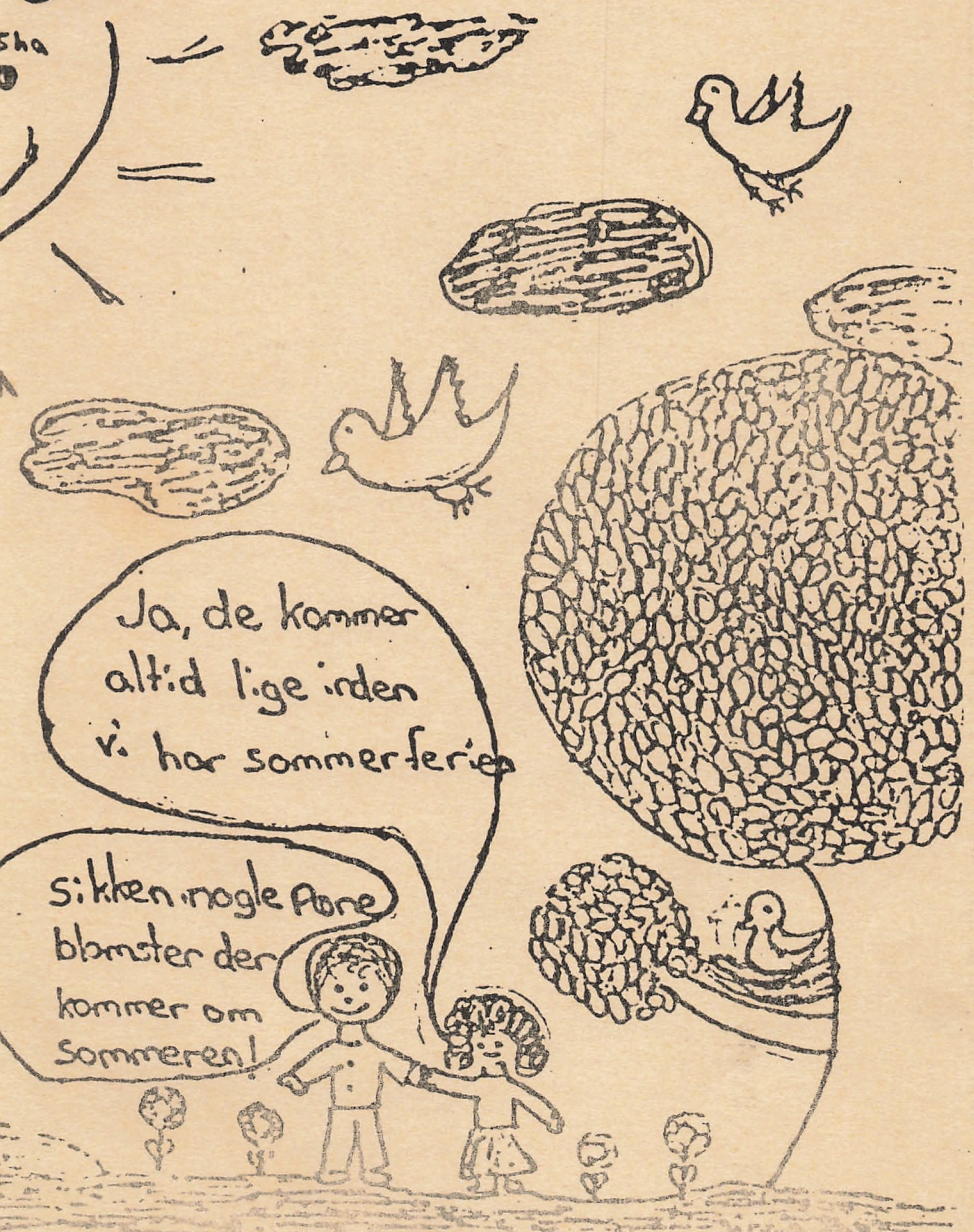 sha
Ja, de kommer
altid lige inden
vi har sommerferien
Sikken nogle pæne
blomster der
kommer om
sommeren!